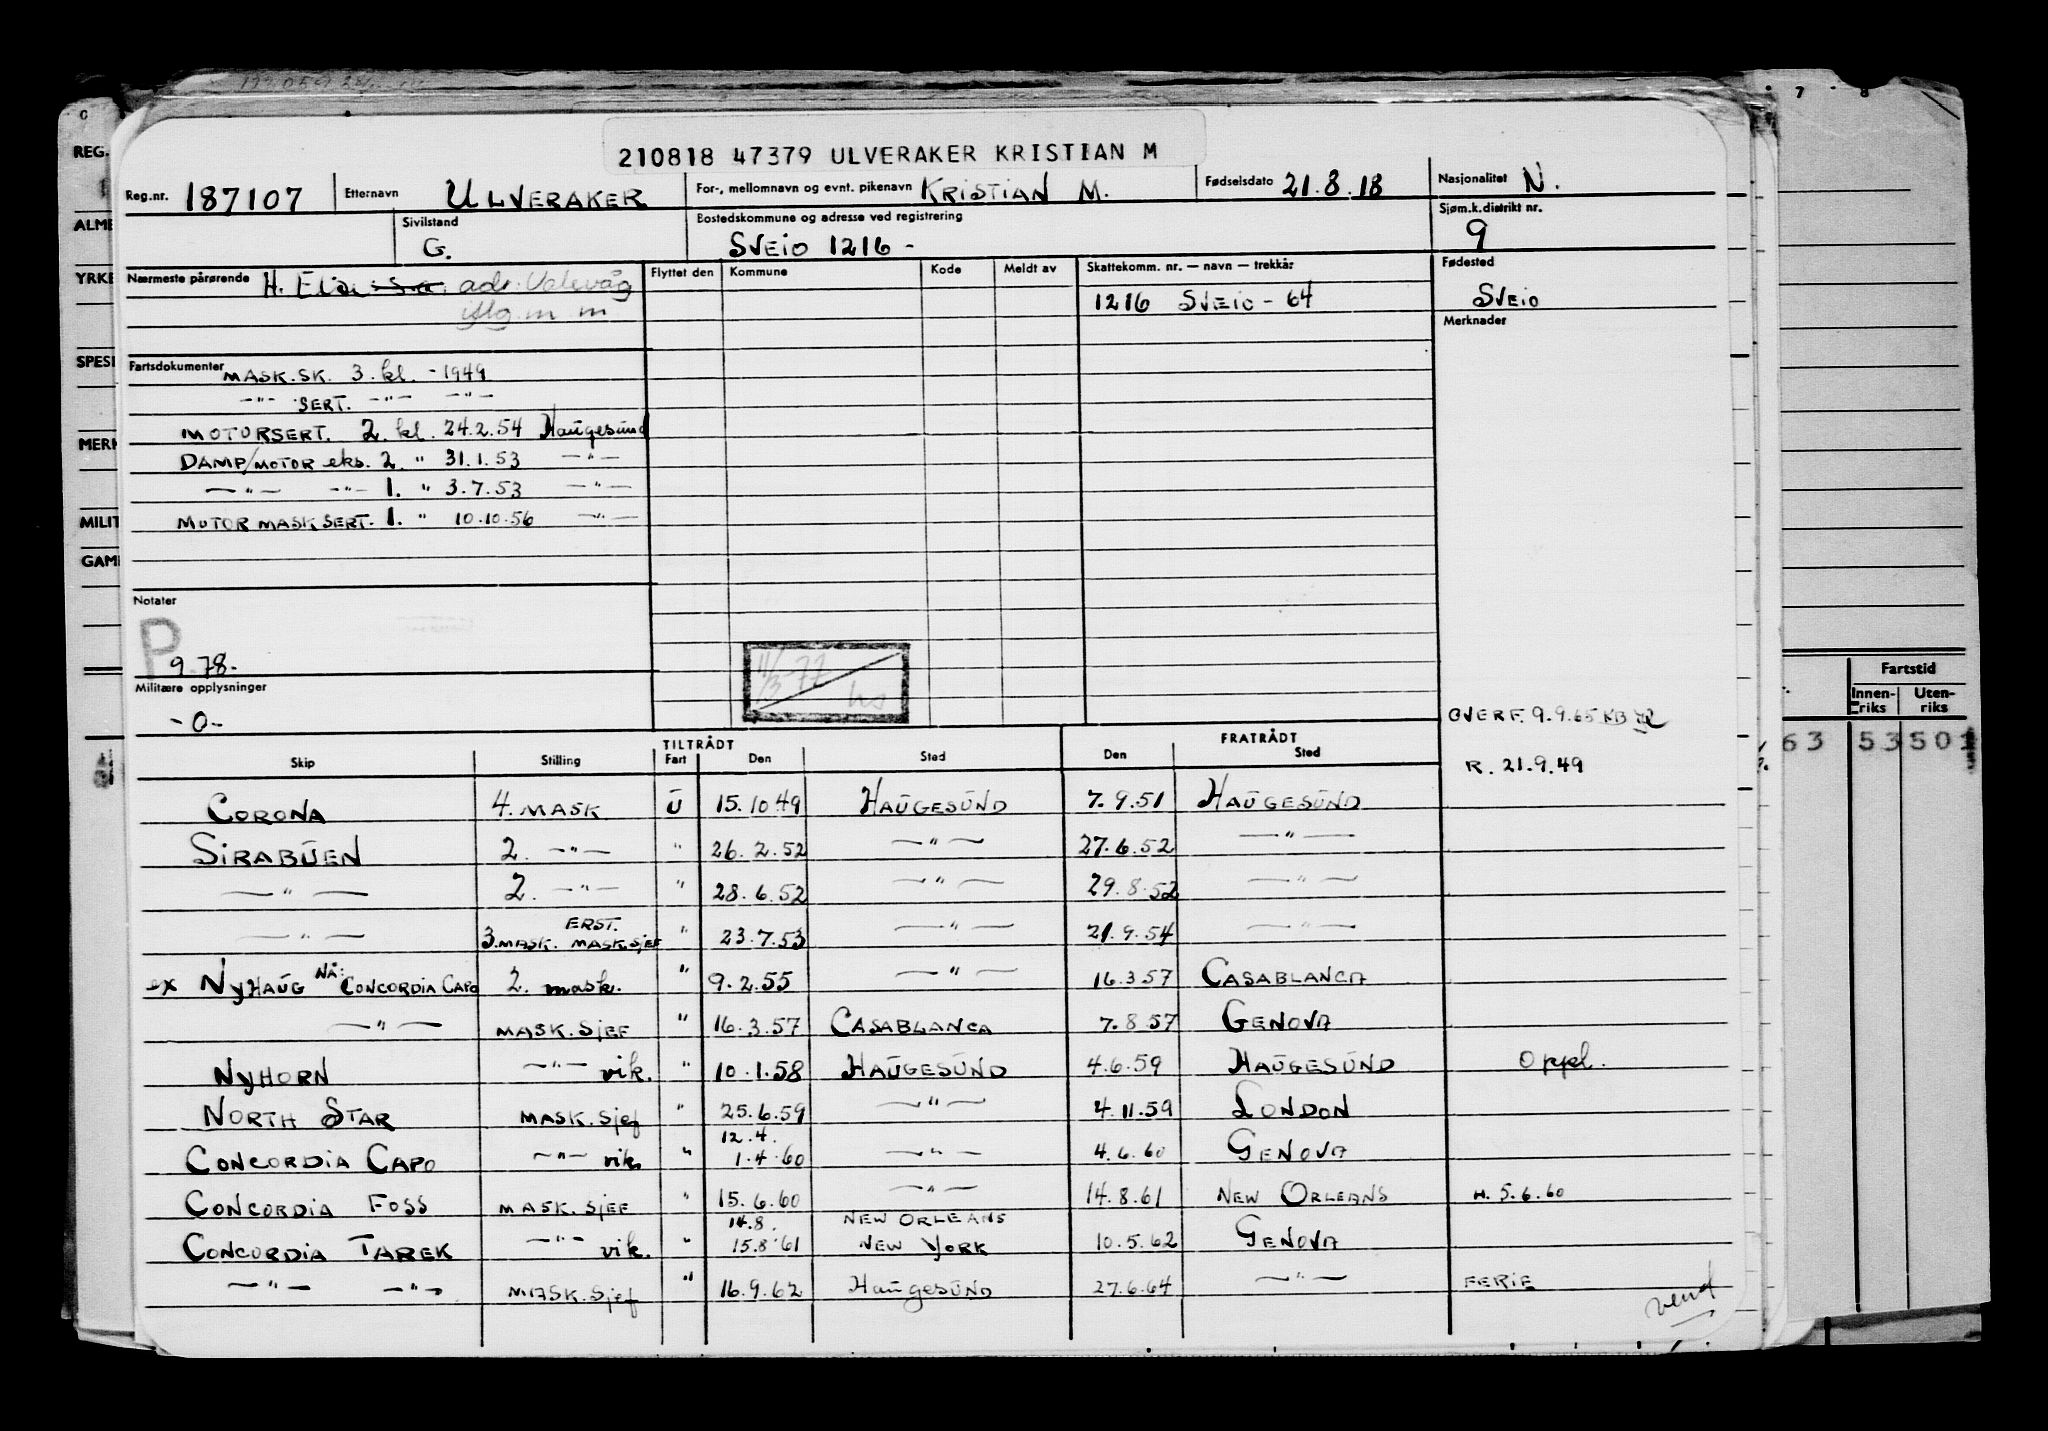 210818 47379 ULVERAKER KRISTIAN M
Reg.nr. 187107 Etternavn ULVERAKER For-, mellomnavn og evnt. pikenavn KRISTIAN M. Fødselsdato 21.8.18 Nasjonalitet N.
Sivilstand G. Bostedskommune og adresse ved registrering SVEIO 1216 - Sjøm.k.distrikt nr. 9
Nærmeste pårørende H. adr. Valevåg
Flyttet den Kommune Kode Meldt av Skattekomm. nr. — navn — trekkår Fødested
1216 SVEIO - 64 SVEIO
Merknader
Fartsdokumenter MASK.SK. 3. kl. - 1949
—"— SERT. —"— —"—
MOTORSERT. 2. kl. 24.2.54 Haugesund
DAMP/MOTOR eks. 2. " 31.1.53 —"—
—"— —"— 1. " 3.7.53 —"—
MOTOR MASK SERT. 1. " 10.10.56 —"—
Notater
P
9.78.
11/3 77
Militære opplysninger
-0-
OVERF. 9.9.65 KB
R. 21.9.49
TILTRÅDT FRATRÅDT
Skip Stilling Fart Den Sted Den Sted
CORONA 4. MASK U 15.10.49 HAUGESUND 7.9.51 HAUGESUND
SIRABUEN 2. —"— " 26.2.52 —"— 27.6.52 —"—
—"— 2. —"— " 28.6.52 —"— 29.8.52 —"—
—"— 3. MASK. ERST. MASK.SJEF " 23.7.53 —"— 21.9.54 —"—
ex NYHAUG NÅ: CONCORDIA CAPO 2. mask. " 9.2.55 —"— 16.3.57 CASABLANCA
—"— MASK.SJEF " 16.3.57 CASABLANCA 7.8.57 GENOVA
NYHORN —"— vik. " 10.1.58 HAUGESUND 4.6.59 HAUGESUND Oppl.
NORTH STAR MASK.Sjef " 25.6.59 —"— 4.11.59 LONDON
12.4.
CONCORDIA CAPO —"— vik " 1.4.60 —"— 4.6.60 GENOVA
CONCORDIA FOSS MASK.SJEF " 15.6.60 —"— 14.8.61 NEW ORLEANS H. 5.6.60
14.8. NEW ORLEANS
CONCORDIA TAREK —"— vik. " 15.8.61 NEW YORK 10.5.62 GENOVA
—"— —"— MASK.Sjef " 16.9.62 HAUGESUND 27.6.64 —"— FERIE
vend
REG.
ALME
YRKE
SPESI
MERK
MILIT
GAME
7 8
Fartstid
Innen-riks Uten-riks
63 53 501